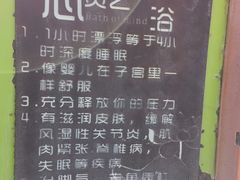 心灵之浴
Bath of Mind
1. 1小时漂浮等于4小
时深度睡眠
2. 像婴儿在子宫里一
样舒服
3. 充分释放你的压力
4. 有滋润皮肤，缓解
风湿性关节炎，肌
肉紧张、脊椎病，
失眠等疾病